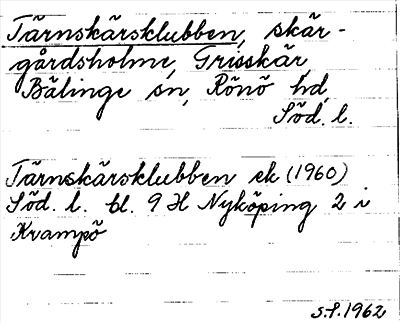 Tärnskärsklubben, skär-
gårdsholme, Grisskär
Bälinge sn, Rönö hd,
Söd. l.
Tärnskärsklubben ek (1960)
Söd. l. bl. 9 H Nyköping 2 i
Krampö
S.S. 1962